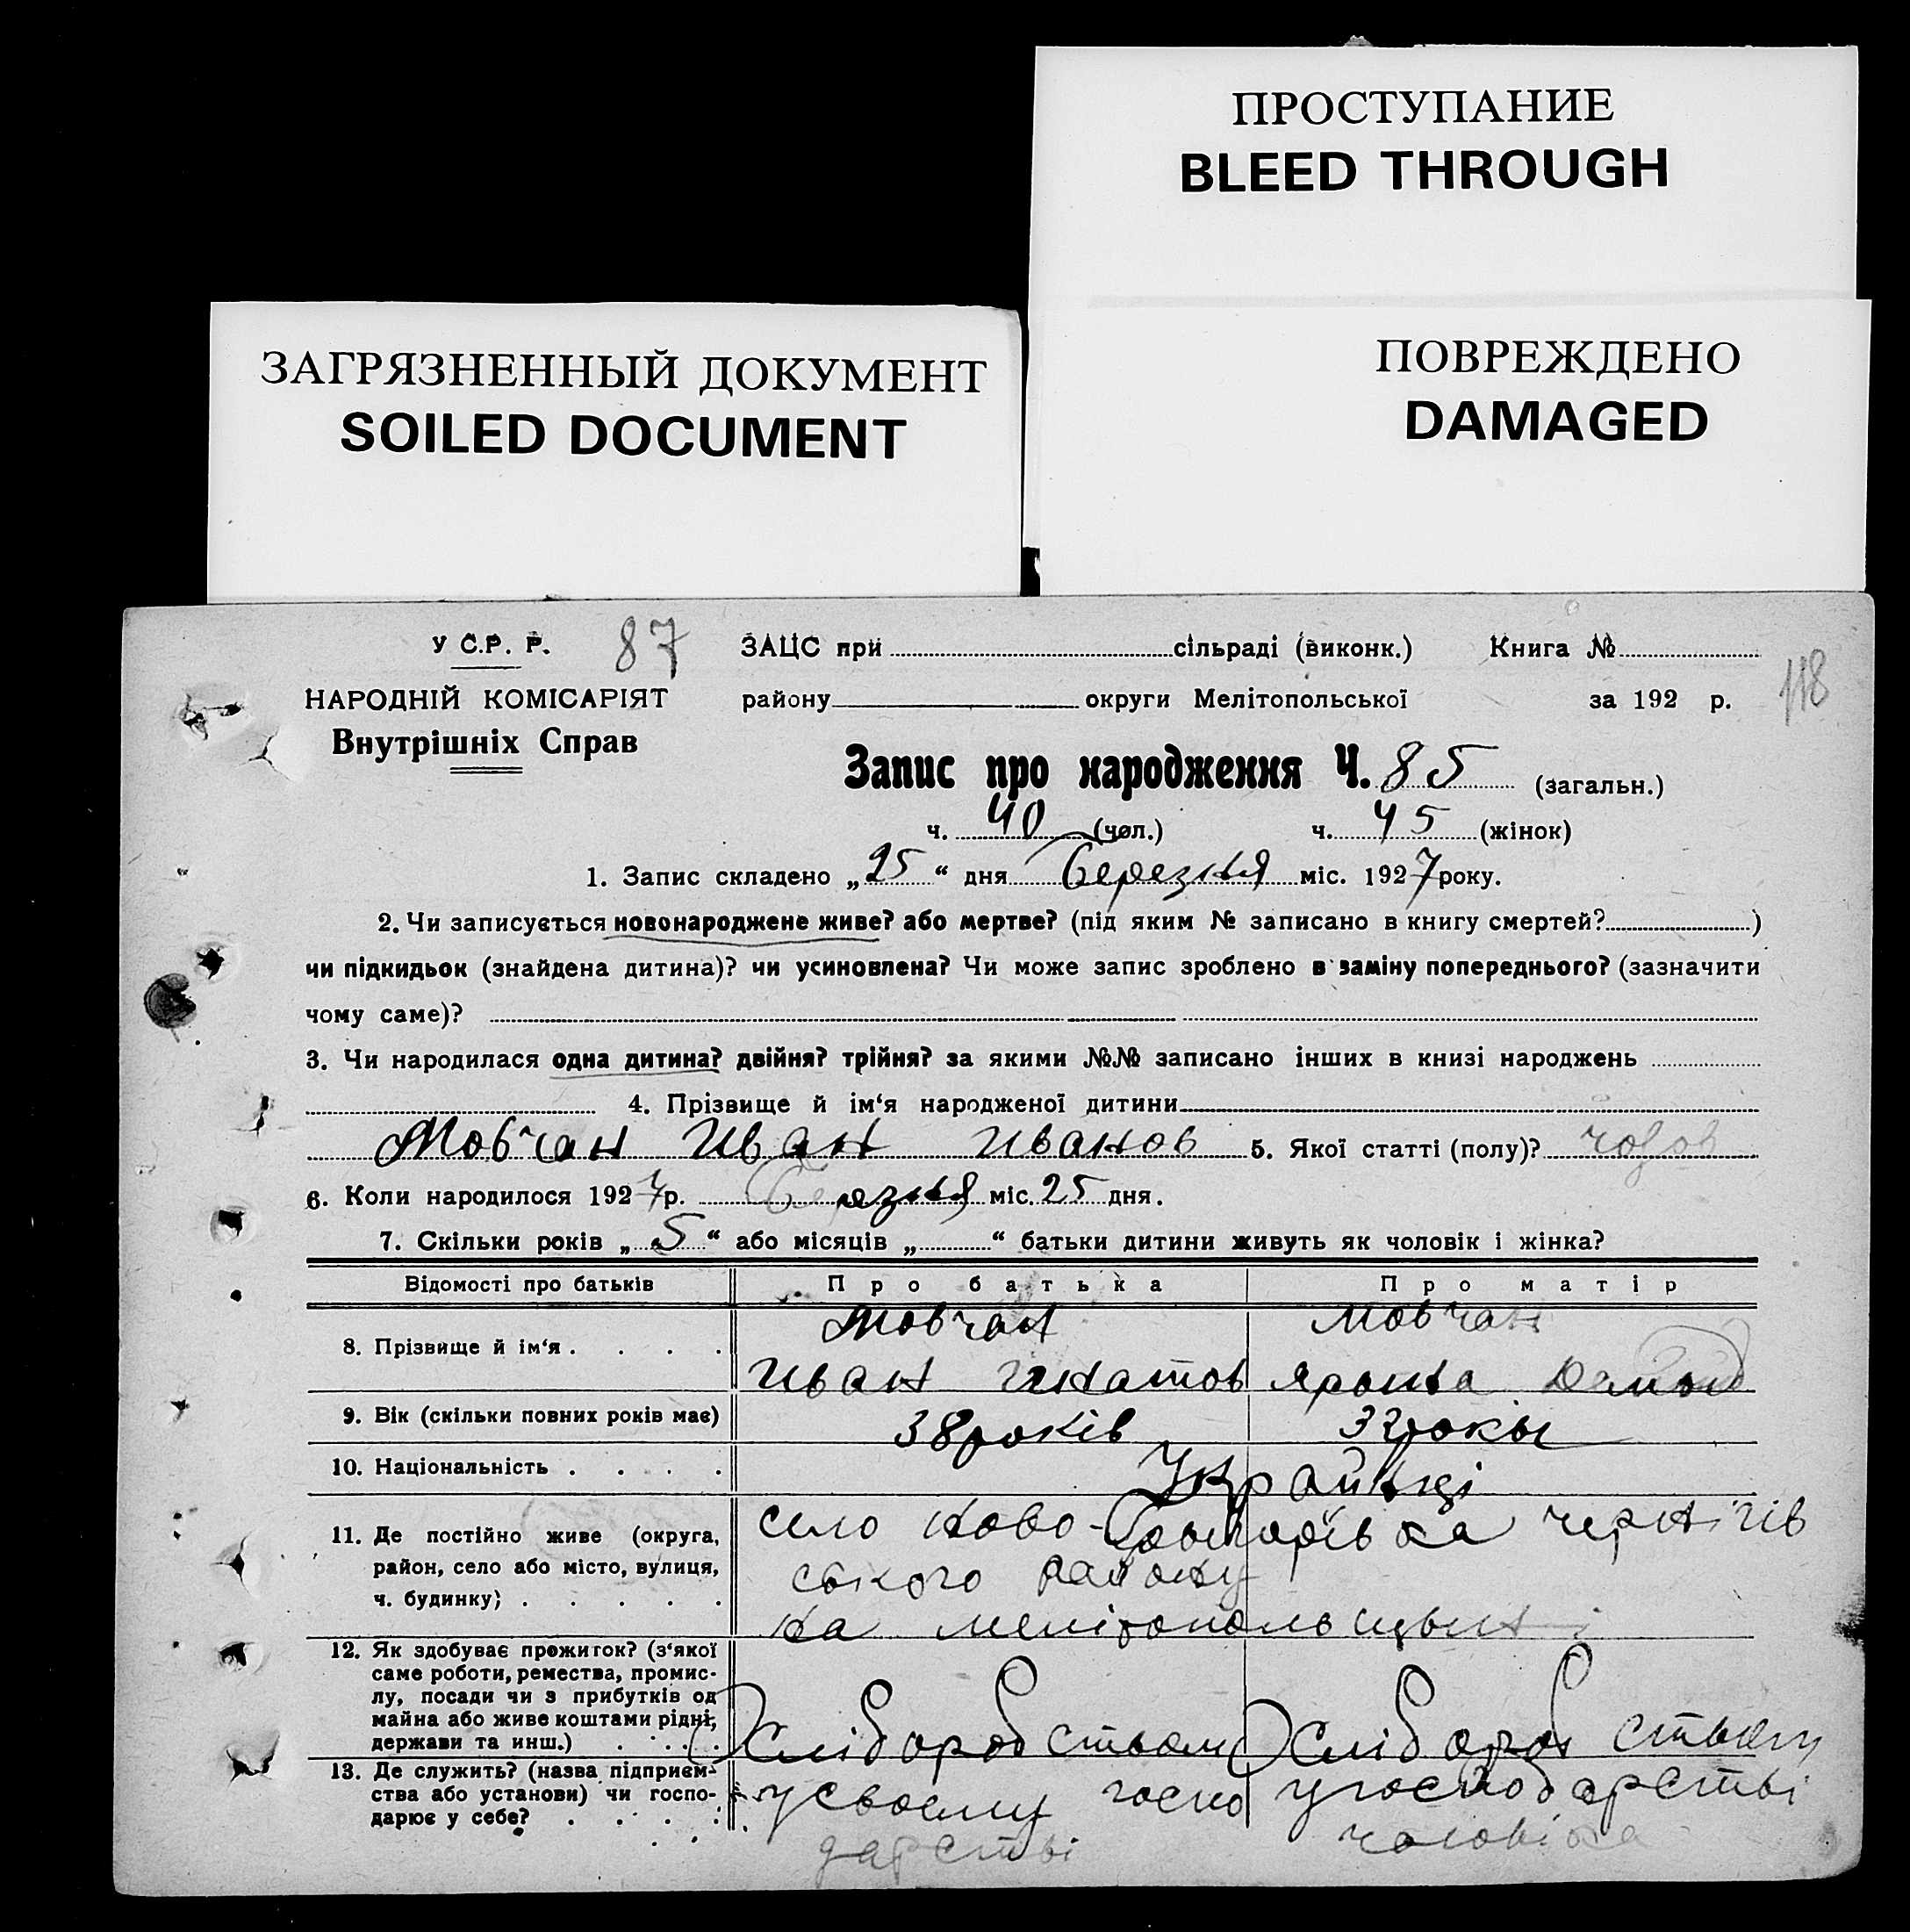 ПРОСТУПАНИЕ
BLEED THROUGH
ЗАГРЯЗНЕННЫЙ ДОКУМЕНТ
SOILED DOCUMENT
ПОВРЕЖДЕНО
DAMAGED
У С.Р. Р. 87 ЗАЦС при сільраді (виконк.) Книга №
118
НАРОДНІЙ КОМІСАРІЯТ району округи Мелітопольської за 192 р.
Внутрішніх Справ
Запис про народження Ч. 85 (загальн.)
ч. 40 (чол.) ч. 45 (жінок)
1. Запис складено „25“ дня Березня міс. 1927 року.
2. Чи записується новонароджене живе? або мертве? (під яким № записано в книгу смертей? )
чи підкидьок (знайдена дитина)? чи усиновлена? Чи може запис зроблено в заміну попереднього? (зазначити
чому саме)?
3. Чи народилася одна дитина? двійня? трійня? за якими №№ записано інших в книзі народжень
4. Прізвище й ім‘я народженої дитини
Мовчан Иван Иванов 5. Якої статті (полу)? чолов
6. Коли народилося 1927 р. Березня міс. 25 дня.
7. Скільки років „5“ або місяців „ “ батьки дитини живуть як чоловік і жінка?
Відомості про батьків Про батька Про матір
Мовчан Мовчан
8. Прізвище й ім‘я . . . .
Иван Игнатов
9. Вік (скільки повних років має) 38 років 32 рокы
10. Національність . . . . Українці
11. Де постійно живе (округа, район, село або місто, вулиця, ч. будинку) . . . . .
село Ново- Чернігів
ського району
на мелітопольщыні
12. Як здобуває прожиток? (з‘якої
саме роботи, ремества, промис-
лу, посади чи з прибутків од
майна або живе коштами рідні,
держави та инш.) . . . . Хліборобством Хліборобством
13. Де служить? (назва підприєм-
ства або установи) чи госпо-
дарює у себе? . . . .
у своему госпо у господарстві
дарстві чоловіка